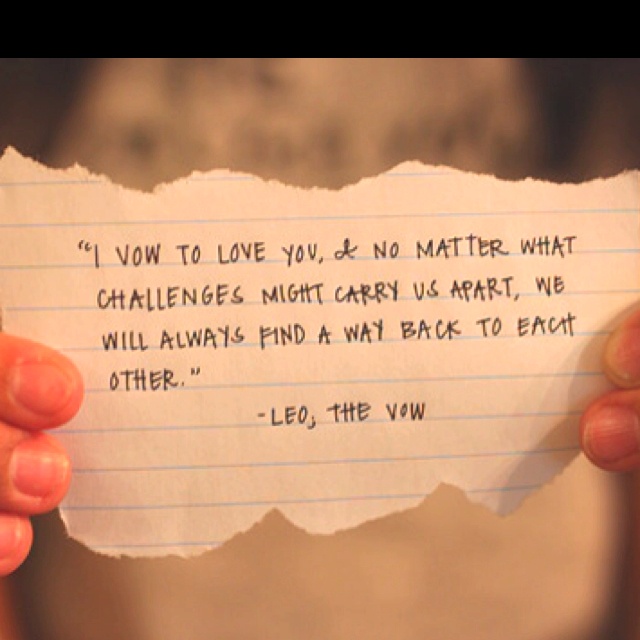 "I VOW TO LOVE YOU, & NO MATTER WHAT
CHALLENGES MIGHT CARRY US APART, WE
WILL ALWAYS FIND A WAY BACK TO EACH
OTHER."
-LEO, THE VOW